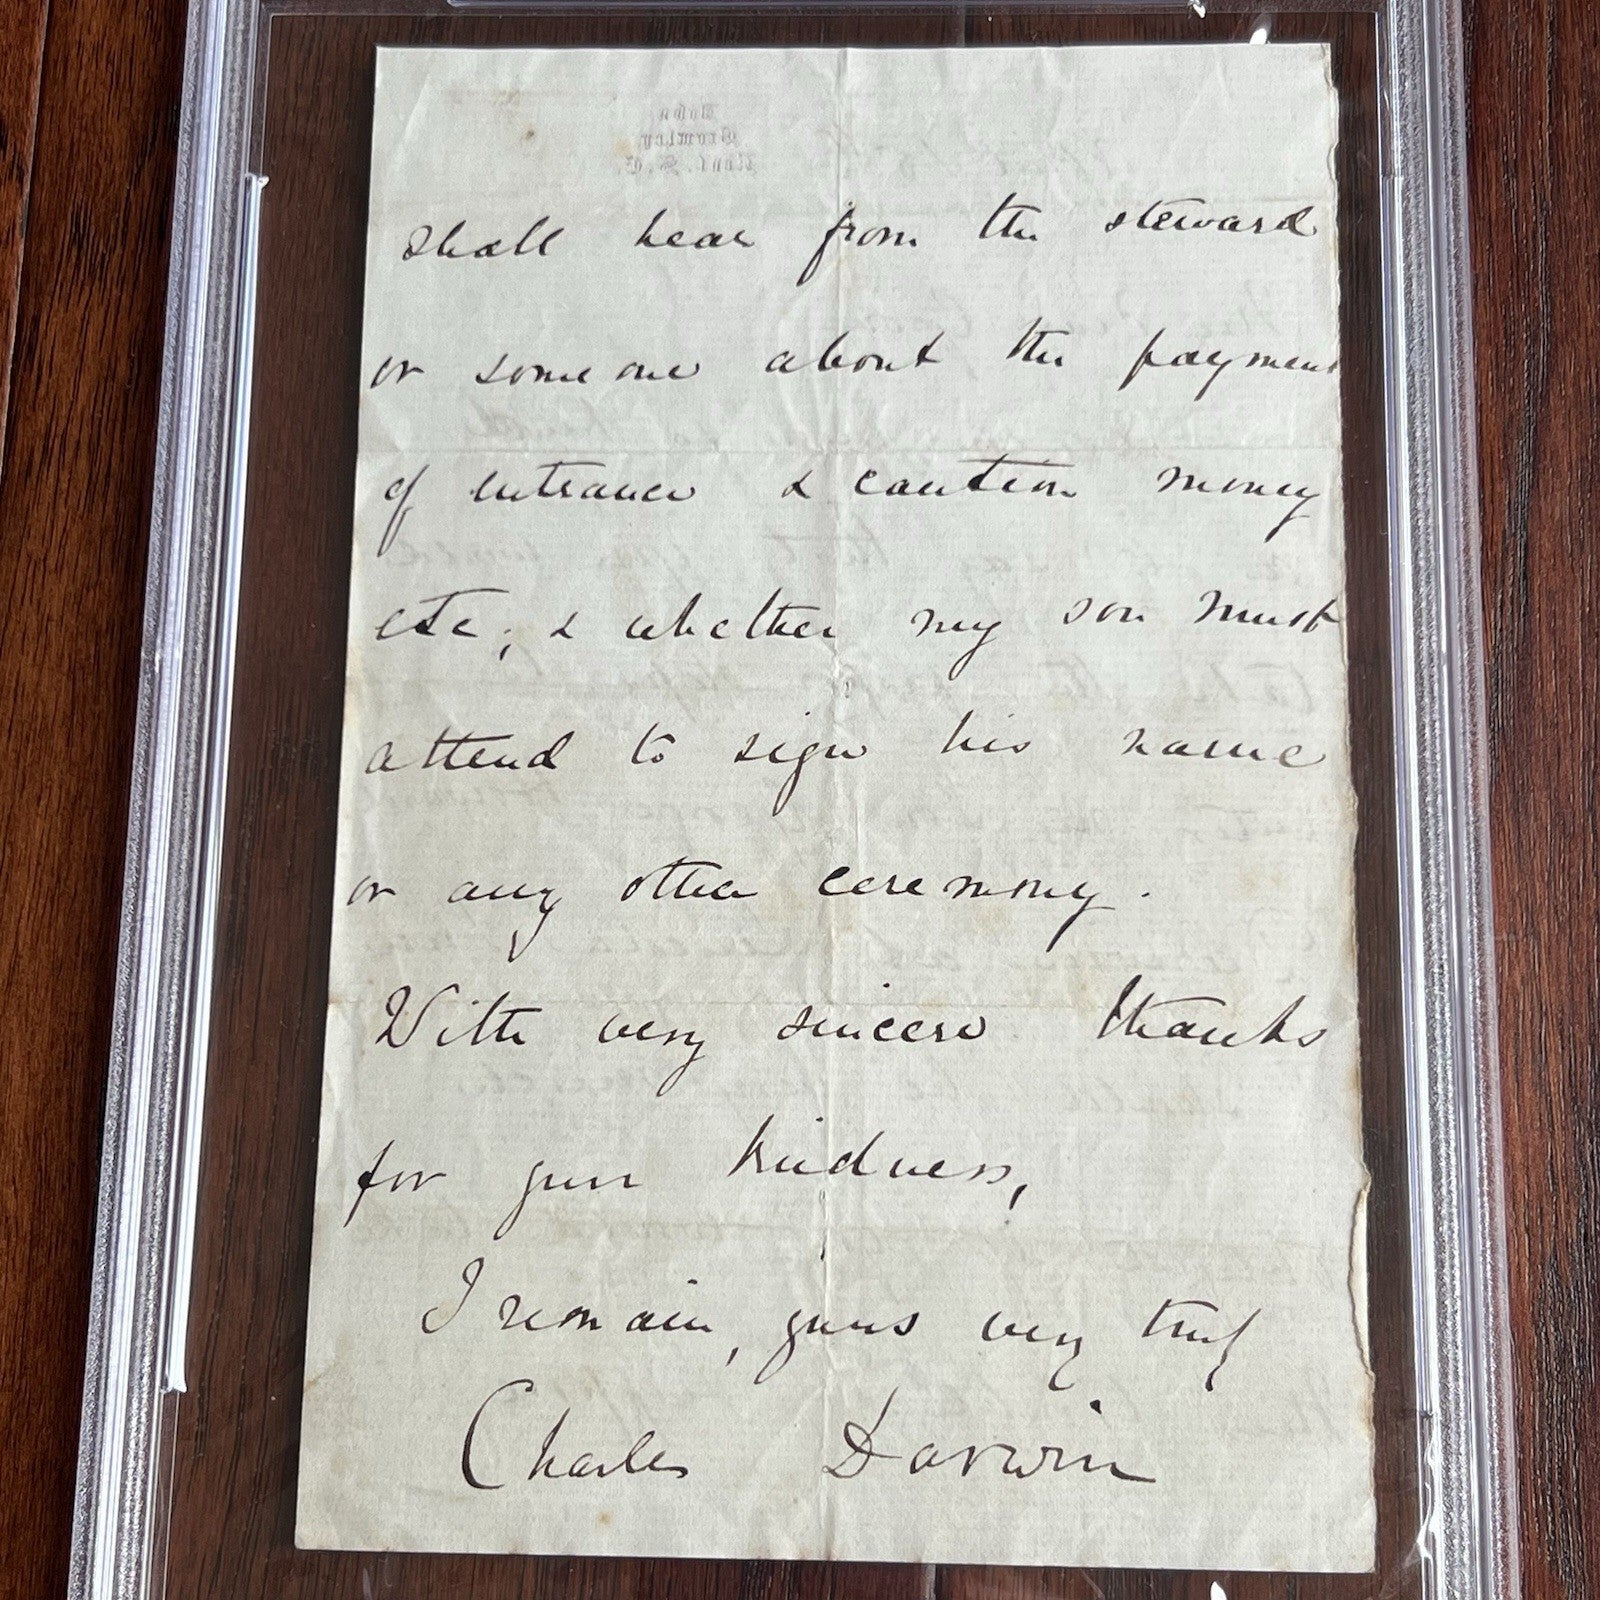 shall hear from the steward
or some one about the payment
of entrance & caution money
etc, & whether my son must
attend to sign his name
or any other ceremony.
With very sincere thanks
for your kindness,
I remain, yours very truly
Charles Darwin